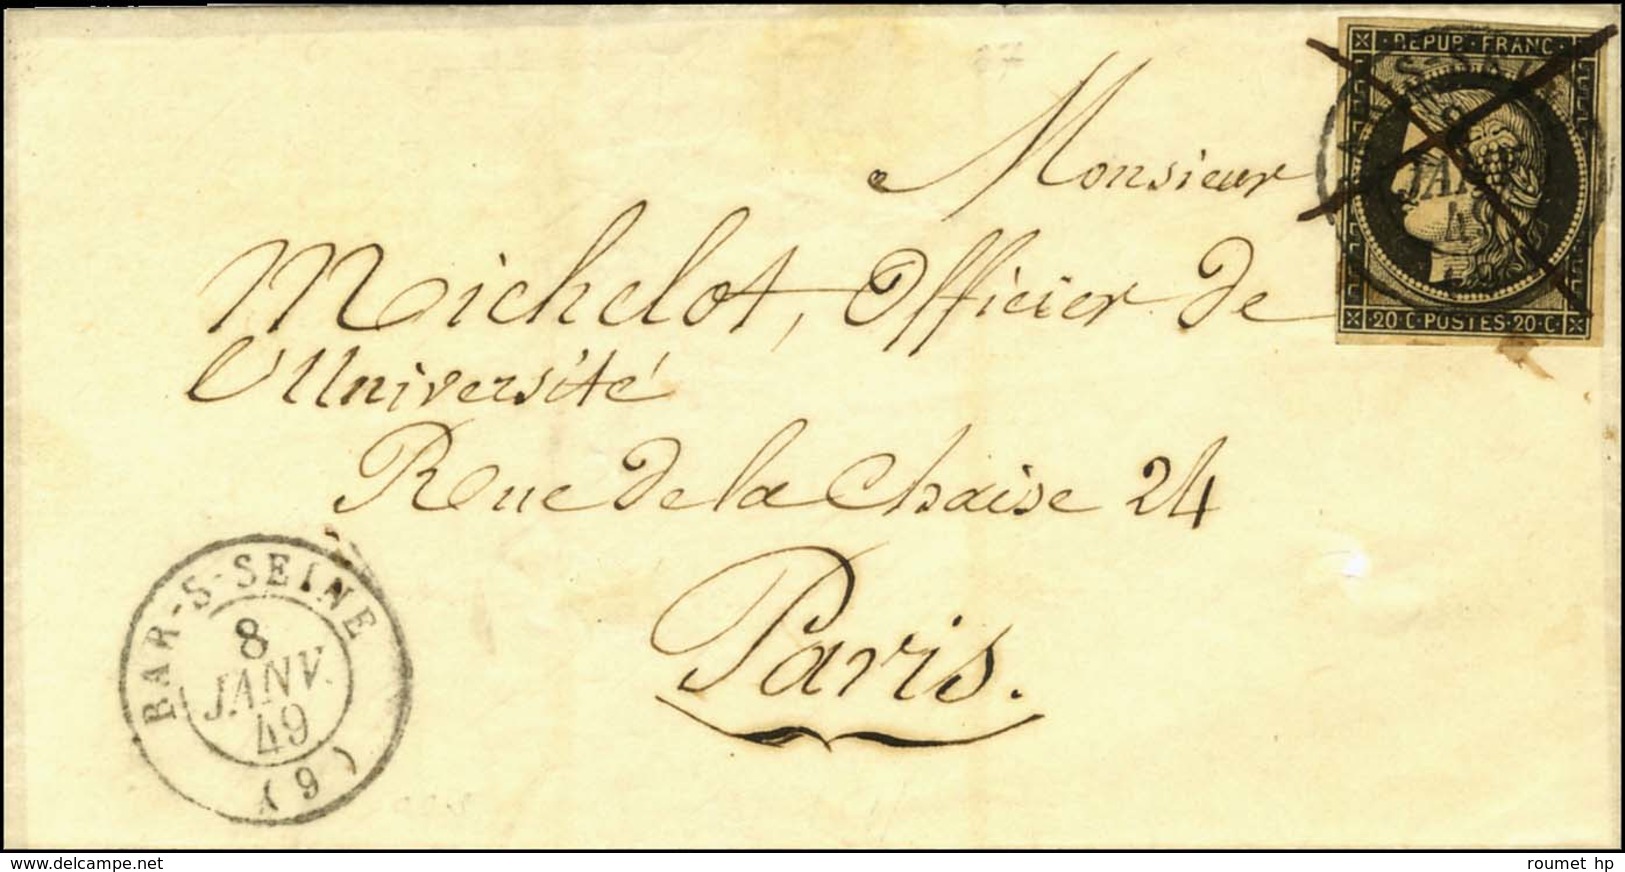 REPUB · FRANC ·
JAN
20 · C · POSTES · 20 · C ·
Monsieur
Michelot, Officier de
l'Université
Rue de la Chaise 24
Paris.
BAR-S-SEINE
8
JANV.
49
(9)
www.delcampe.net
roumet hp